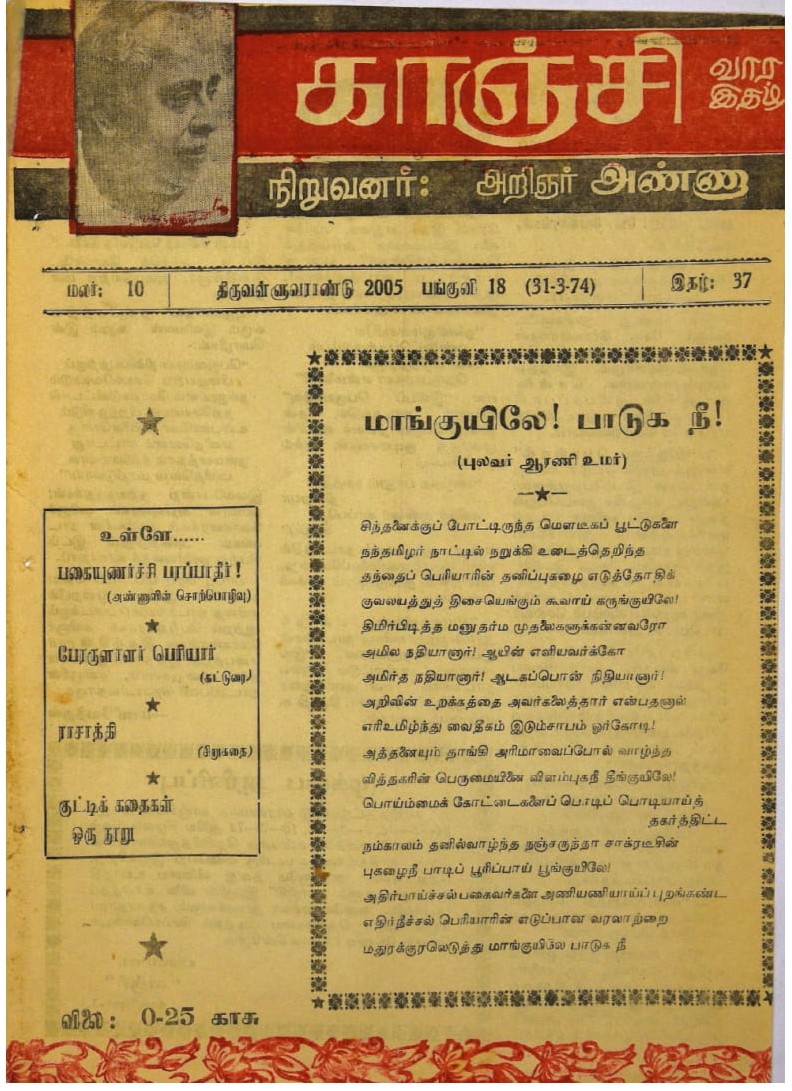 காஞ்சி
வார
இதழ்
நிறுவனர்: அறிஞர் அண்ணா
மலர்: 10
திருவள்ளுவராண்டு 2005 பங்குனி 18 (31-3-74)
இதழ்: 37
உள்ளே......
பகையுணர்ச்சி பரப்பாதீர்!
(அண்ணாவின் சொற்பொழிவு)
பேரருளாளர் பெரியார்
(கட்டுரை)
ராசாத்தி
(சிறுகதை)
குட்டிக் கதைகள்
ஒரு நூறு
விலை: 0-25 காசு
மாங்குயிலே! பாடுக நீ!
(புலவர் ஆரணி உமர்)
சிந்தனைக்குப் போட்டிருந்த மௌடீகப் பூட்டுகளை
நந்தமிழர் நாட்டில் நறுக்கி உடைத்தெறிந்த
தந்தைப் பெரியாரின் தனிப்புகழை எடுத்தோதிக்
குவலயத்துத் திசையெங்கும் கூவாய் கருங்குயிலே!
திமிர்பிடித்த மனுதர்ம முதலைகளுக்கன்னவரோ
அமில நதியானார்! ஆயின் எளியவர்க்கோ
அமிர்த நதியானார்! ஆடகப்பொன் நிதியானார்!
அறிவின் உறக்கத்தை அவர்கலைத்தார் என்பதனால்
எரிஉமிழ்ந்து வைதீகம் இடும்சாபம் ஓர்கோடி!
அத்தனையும் தாங்கி அரிமாவைப்போல் வாழ்ந்த
வித்தகரின் பெருமையினை விளம்புகநீ தீங்குயிலே!
பொய்ம்மைக் கோட்டைகளைப் பொடிப் பொடியாய்த்
தகர்த்திட்ட
நம்காலம் தனில்வாழ்ந்த நஞ்சருந்தா சாக்ரடீசின்
புகழைநீ பாடிப் பூரிப்பாய் பூங்குயிலே!
அதிர்பாய்ச்சல் பகைவர்களை அணியணியாய்ப் புறங்கண்ட
எதிர்நீச்சல் பெரியாரின் எடுப்பான வரலாற்றை
மதுரக்குரலெடுத்து மாங்குயிலே பாடுக நீ